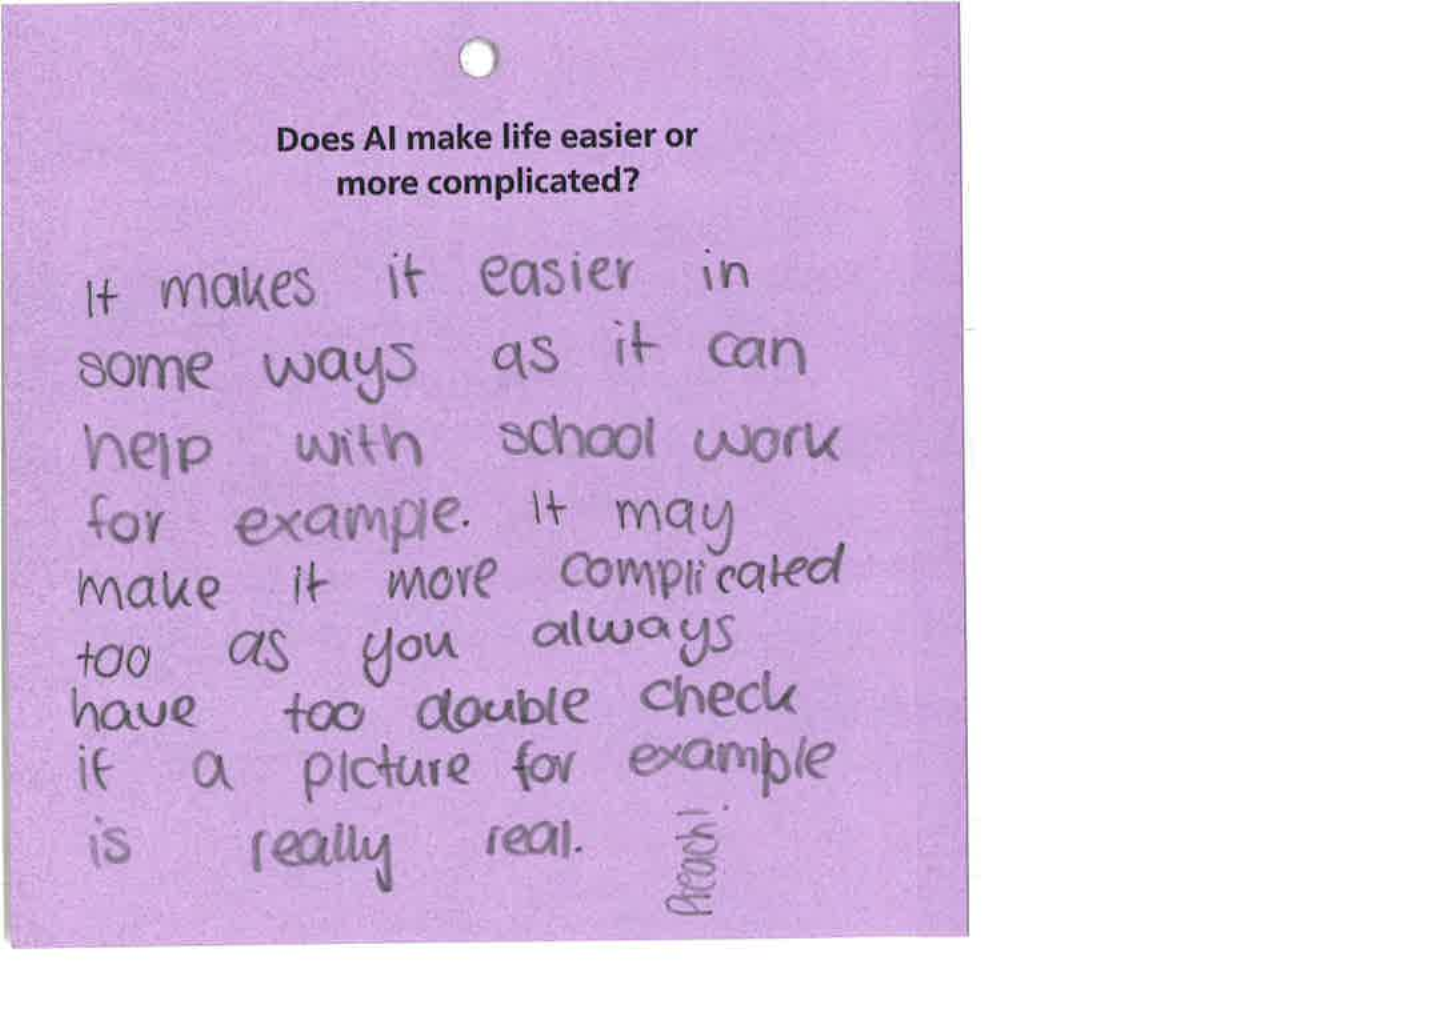 Does AI make life easier or
more complicated?
It makes it easier in
some ways as it can
help with school work
for example. It may
make it more complicated
too as you always
have too double check
if a picture for example
is really real.
Preach!